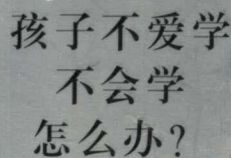 孩子不爱学
不会学
怎么办?